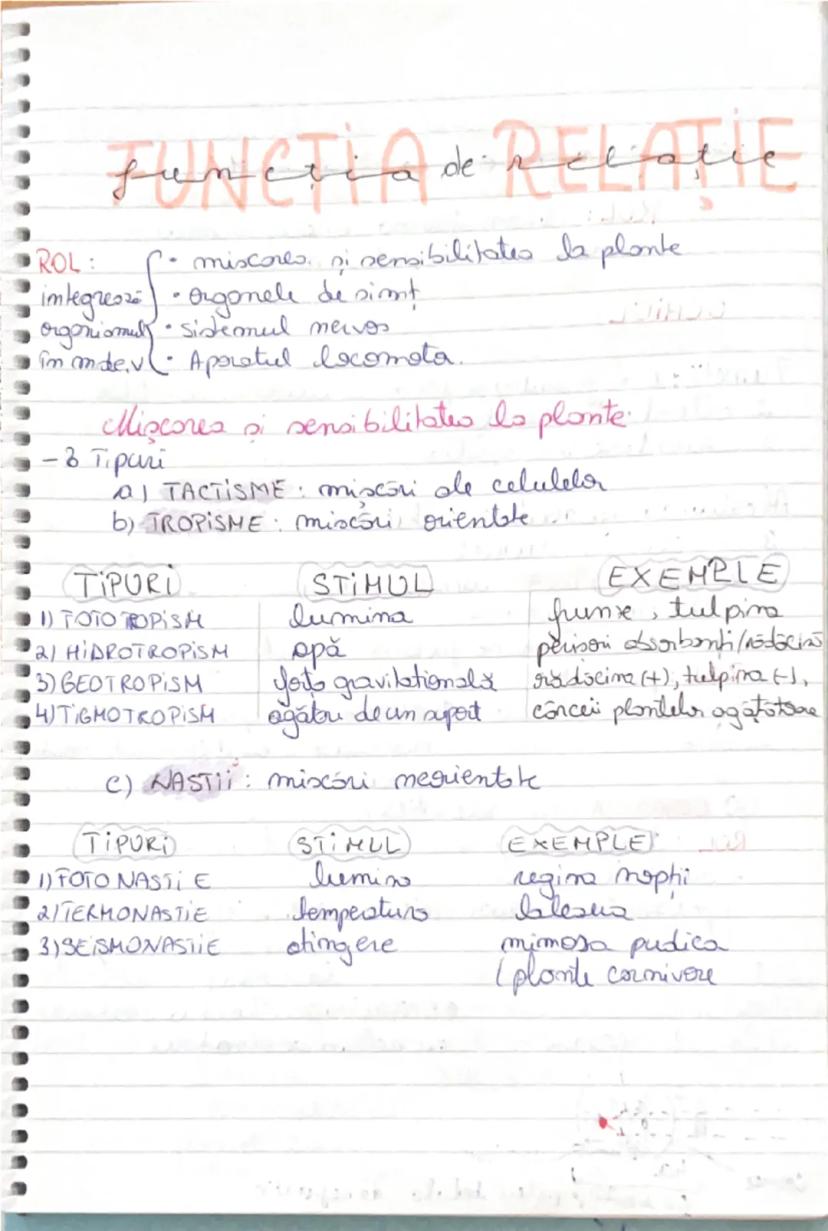 FUNCȚIA RELAȚIE
funcția de relație
ROL: • miscarea și sensibilitatea la plante
integrează • organele de simț
organismul • sistemul nervos
în m.de.v • Aparatul locomota.
Mișcarea și sensibilitatea la plante
- 3 Tipuri
a) TACTISME: mișcări ale celulelor
b) TROPISME: miscări orientate
TIPURI STIMUL EXEMPLE
1) FOTOTROPISM lumina frunze, tulpina
2) HIDROTROPISM apă perisori absorbanți/rădăcină
3) GEOTROPISM forța gravitațională rădăcina (+), tulpina (-),
4) TIGMOTROPISM agățau de un suport cârceii plantelor agățătoare
c) NASTII: miscări neorientate
TIPURI STIMUL EXEMPLE
1) FOTONASTIE lumina regina nopții
2) TERMONASTIE temperatura laleaua
3) SEISMONASTIE atingere mimosa pudica
(plante carnivore